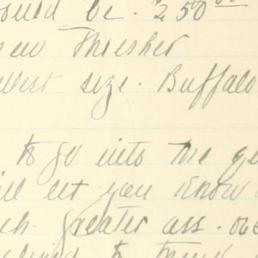 ould be. 250 00
ew Thresher
west size. Buffalo
to go into the ge
ill let you know
ch greater ass.